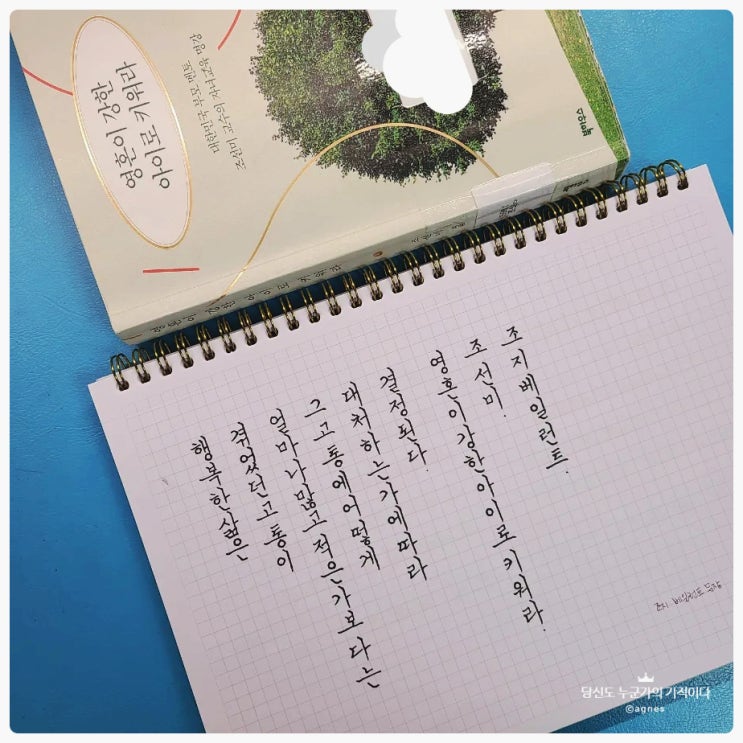 영혼이 강한
아이로 키워라
대한민국 부모 멘토
조선미 교수의 자녀교육
영혼이 강한 아이로 키워라
행복한삶은
겪었던고통이
얼마나많고적은가보다는
그고통에어떻게
대처하는가에따라
결정된다.
영혼이강한아이로키워라.
조선미.
조지베일런트.
당신도 누군가의 기적이다
©agnes